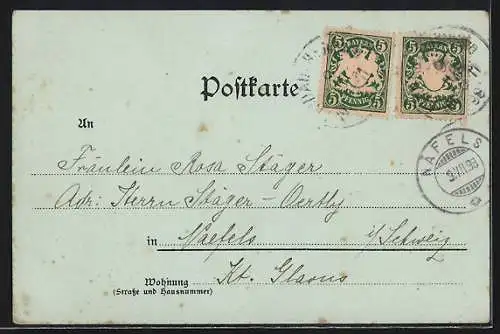 5 BAYERN 5
5 PFENNIG 5
5 BAYERN 5
5 PFENNIG 5
Postkarte
NÄFELS
An
Fräulein Rosa Stäger
Adr: Herrn Stäger-Oertly
in Naefels i/Schweiz
Wohnung Kt. Glarus
(Straße und Hausnummer)